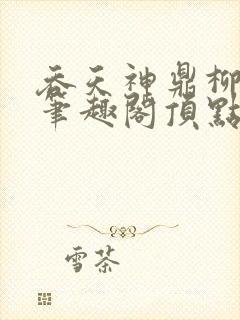 吞天神鼎柳
筆趣閣頂點
雪茶